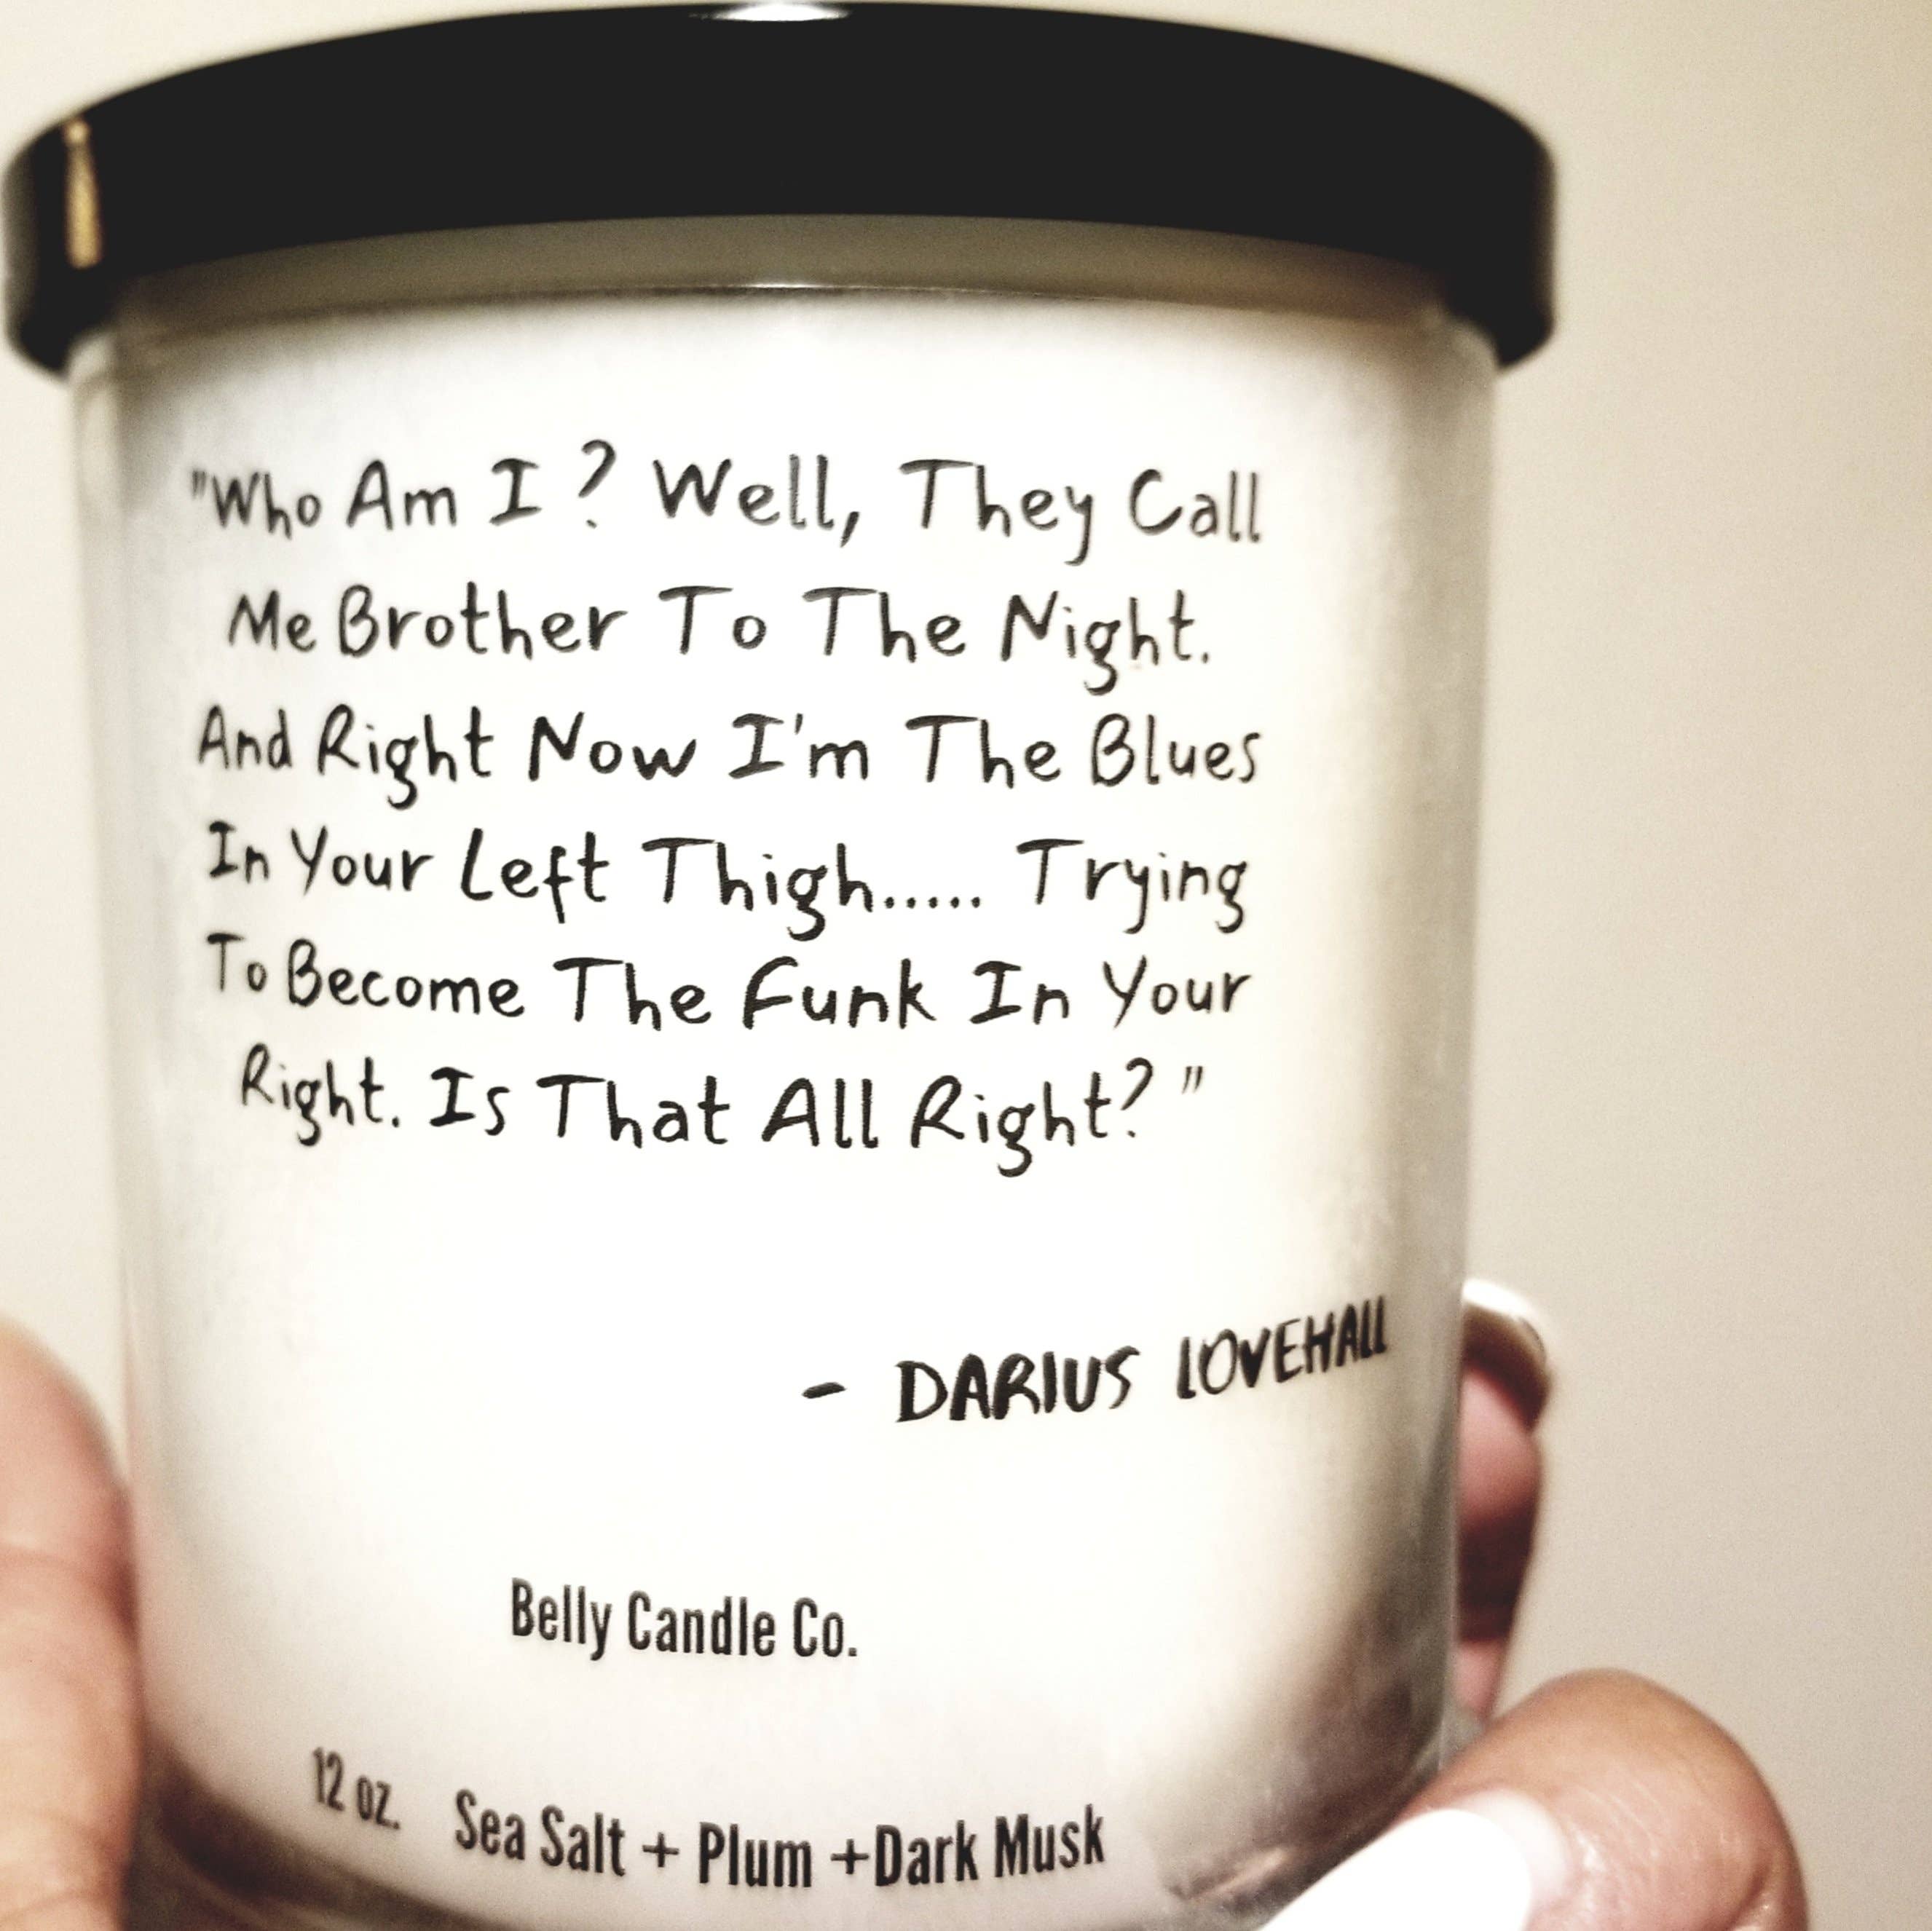 "Who Am I? Well, They Call
Me Brother To The Night.
And Right Now I'm The Blues
In Your Left Thigh..... Trying
To Become The Funk In Your
Right. Is That All Right?"
- DARIUS LOVEHALL
Belly Candle Co.
12 oz. Sea Salt + Plum +Dark Musk